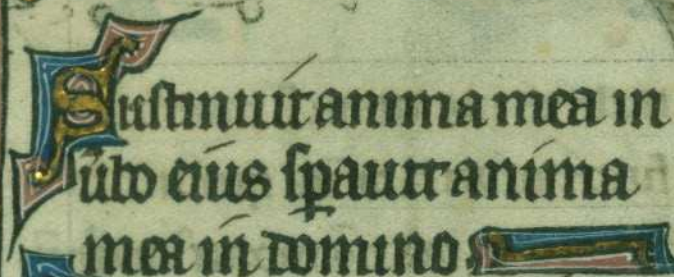 Sustinuit anima mea in
ůbo eius sꝑauit anima
mea in domino